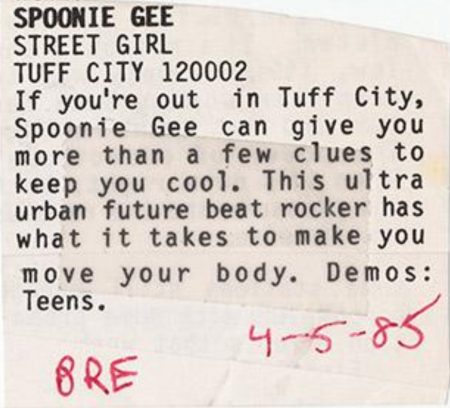 SPOONIE GEE
STREET GIRL
TUFF CITY 120002
If you're out in Tuff City,
Spoonie Gee can give you
more than a few clues to
keep you cool. This ultra
urban future beat rocker has
what it takes to make you
move your body. Demos:
Teens.
4-5-85
BRE